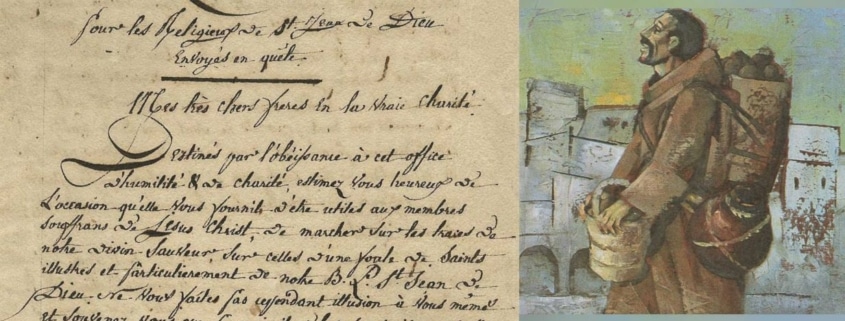 pour les Religieux de St Jean de Dieu
Envoyés en quête
Mes très chers freres En la vraie charité
Destinés par l'obéissance à cet office
d'humilité & de charité, estimez Vous heureux de
L'occasion qu'elle Vous fournit d'etre utiles aux membres
souffrans de Jesus Christ de marcher Sur les traces de
notre divin Sauveur, Sur celles d'une foule de Saints
illustres et particulierement de notre B. P. St Jean de
Dieu. Ne Vous faites pas cependant illusion à Vous même
et souvenez Vous